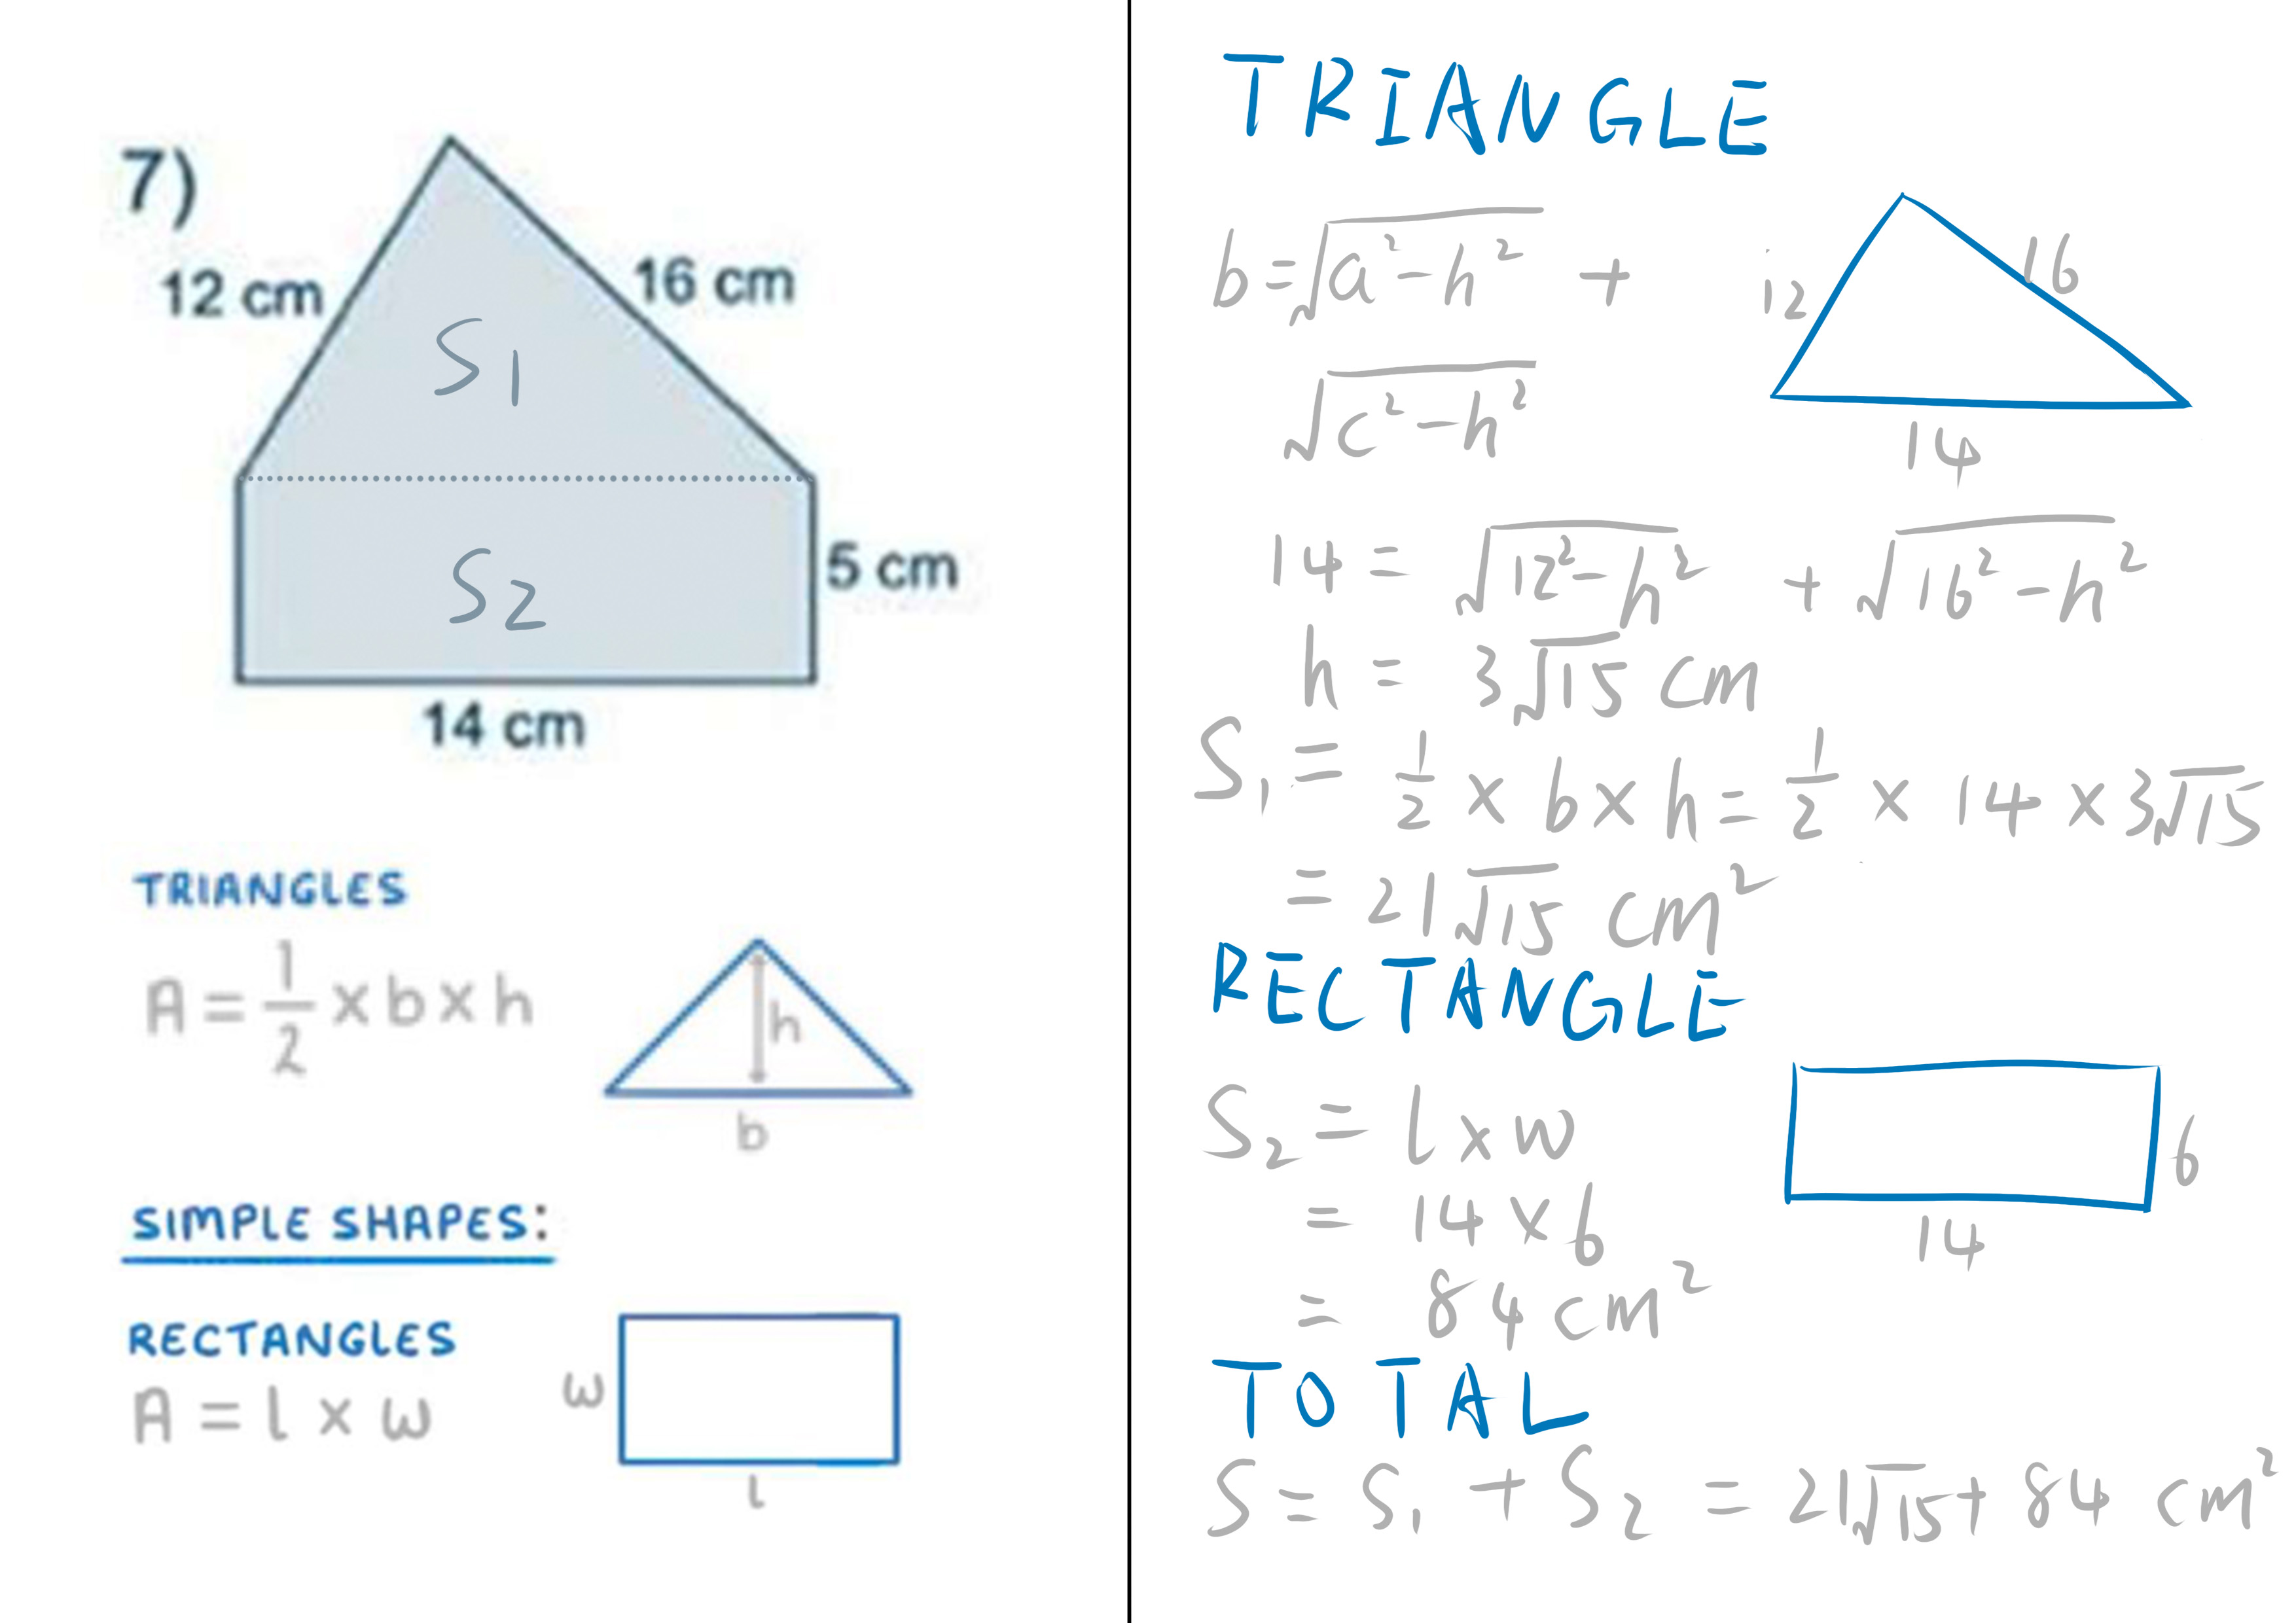 7)
12 cm
16 cm
S1
S2
5 cm
14 cm
TRIANGLES
A = 1/2 × b × h
h
b
SIMPLE SHAPES:
RECTANGLES
A = l × w
w
l
TRIANGLE
b = √(a² − h²) +
√(c² − h²)
12
16
14
14 = √(12² − h²) + √(16² − h²)
h = 3√15 cm
S₁ = 1/2 × b × h = 1/2 × 14 × 3√15
= 21√15 cm²
RECTANGLE
S₂ = l × w
= 14 × 6
= 84 cm²
6
14
TOTAL
S = S₁ + S₂ = 21√15 + 84 cm²